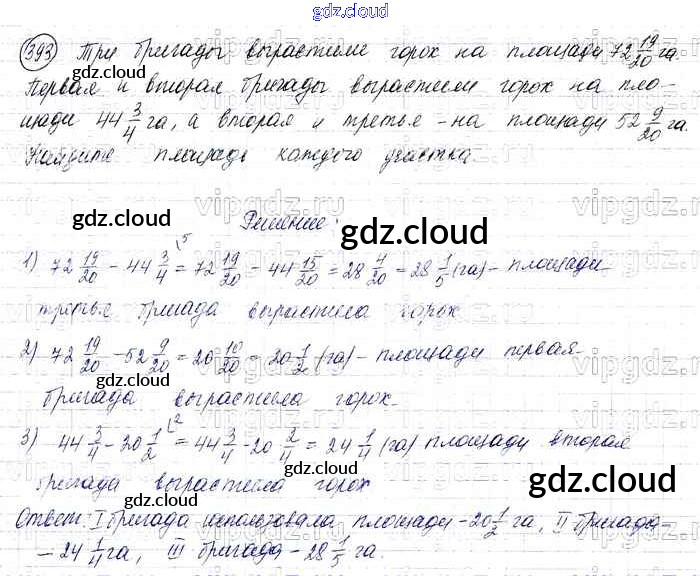 gdz.cloud
393) Три бригады вырастили горох на площади 72 19/20 га.
Первая и вторая бригады вырастили горох на пло-
щади 44 3/4 га, а вторая и третье - на площади 52 9/20 га.
Найдите площадь каждого участка
gdz.cloud
gdz.cloud
Решение:
1) 72 19/20 - 44 3/4 ⁵ = 72 19/20 - 44 15/20 = 28 4/20 = 28 1/5 (га) - площади
третье бригада вырастила горох
2) 72 19/20 - 52 9/20 = 20 10/20 = 20 1/2 (га) - площади первая
gdz.cloud
бригада вырастила горох
3) 44 3/4 - 20 1/2 ² = 44 3/4 - 20 2/4 = 24 1/4 (га) площади вторая
gdz.cloud
gdz.cloud
бригада вырастила горох
gdz.cloud
Ответ: I бригада использовала площади - 20 1/2 га, II бригада -
- 24 1/4 га, III бригада - 28 1/5 га.
gdz.cloud